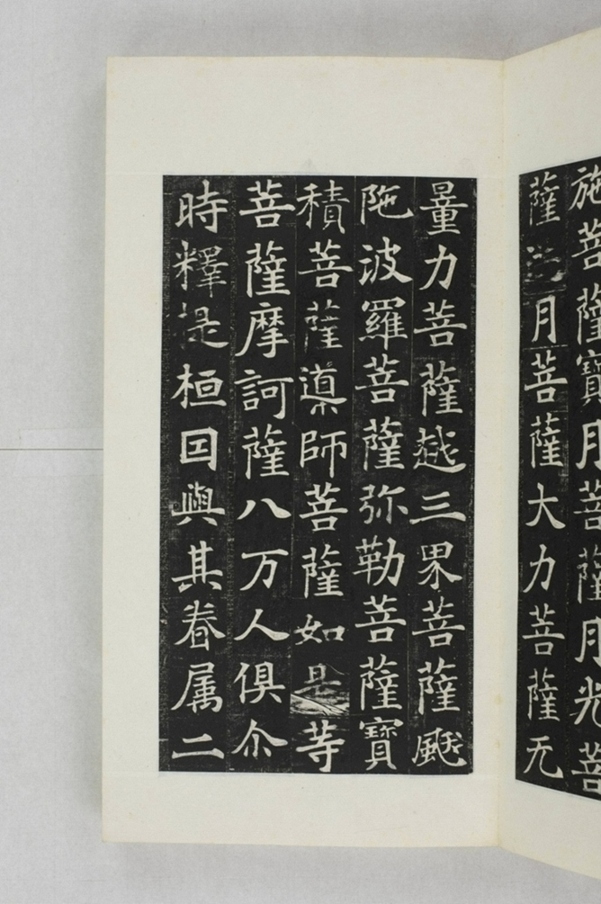 施菩薩寶月菩薩月光菩
薩滿月菩薩大力菩薩无
量力菩薩越三界菩薩颰
陁波羅菩薩弥勒菩薩寶
積菩薩導師菩薩如是等
菩薩摩訶薩八万人俱尒
時釋提桓因與其眷属二